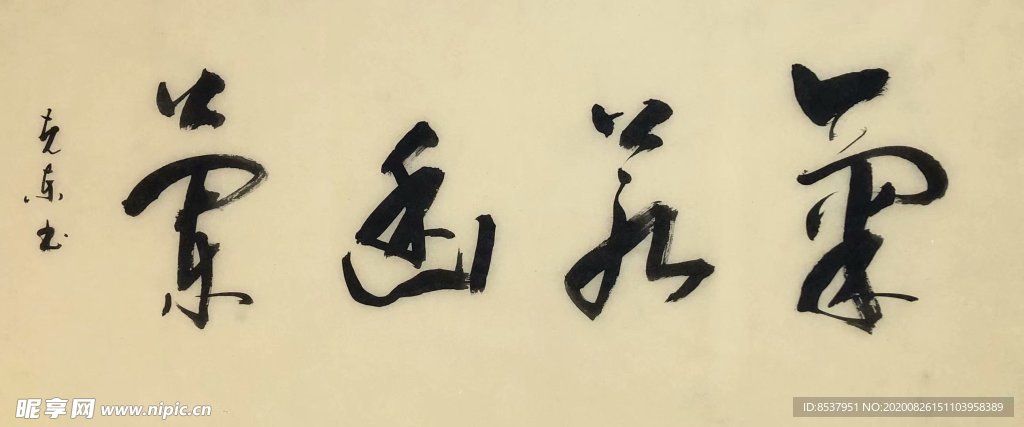 氣若幽蘭
克东书
昵享网 www.nipic.cn
ID:8537951 NO:20200826151103958389